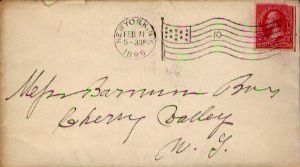 NEW YORK, N.Y.
FEB 11
5-30P
1895
10
Mess Barnum Bros
Cherry Valley
N. Y.